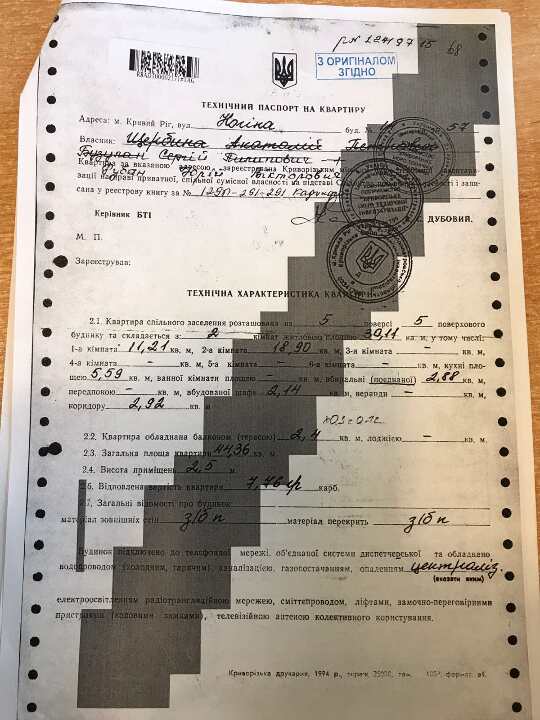 З ОРИГІНАЛОМ
ЗГІДНО
ТЕХНІЧНИЙ ПАСПОРТ НА КВАРТИРУ
Адреса: м. Кривий Ріг, вул. буд. №
Власник: Щербина Анатолій
Сергій Пилипович
Квартира за вказаною адресою зареєстрована Криворізьким
на праві приватної, спільної сумісної власності на підставі
сана у реєстрову книгу за №
Керівник БТІ ДУБОВИЙ.
М. П.
Зареєстрував:
ТЕХНІЧНА ХАРАКТЕРИСТИКА КВАРТИРИ
2.1. Квартира спільного заселення розташована на 5 поверсі 5 поверхового
будинку та складається з 2 кімнат житловою площею 30,11 кв. м, у тому числі:
1-а кімната 11,21 кв. м, 2-а кімната 18,90 кв. м, 3-я кімната - кв. м,
4-а кімната - кв. м, 5-а кімната - кв. м, 6-а кімната - кв. м, кухні пло-
щею 5,59 кв. м, ванної кімнати площею - кв. м, вбиральні (поєднаної) 2,88 кв. м,
передпокою - кв. м, вбудованої шафи 2,14 кв. м, веранди - кв. м,
коридору 2,92 кв. м
2.2. Квартира обладнана балконом (терасою) 2,4 кв. м, лоджією - кв. м.
2.3. Загальна площа квартири 44,36 кв. м.
2.4. Висота приміщень 2,5 м
2.6. Відновлена вартість квартири 7,76 карб.
2.7. Загальні відомості про будинок
матеріал зовнішніх стін з/б п матеріал перекрить з/б п
Будинок підключено до телефонної мережі, об'єднаної системи диспетчерської та обладнано
водопроводом (холодним, гарячим), каналізацією, газопостачанням, опаленням централіз.
(вказати яким)
електроосвітленням радіотрансляційною мережею, сміттєпроводом, ліфтами, замочно-переговорними
пристроями (кодовими замками), телевізійною антеною колективного користування.
Криворізька друкарня, 1994 р., формат